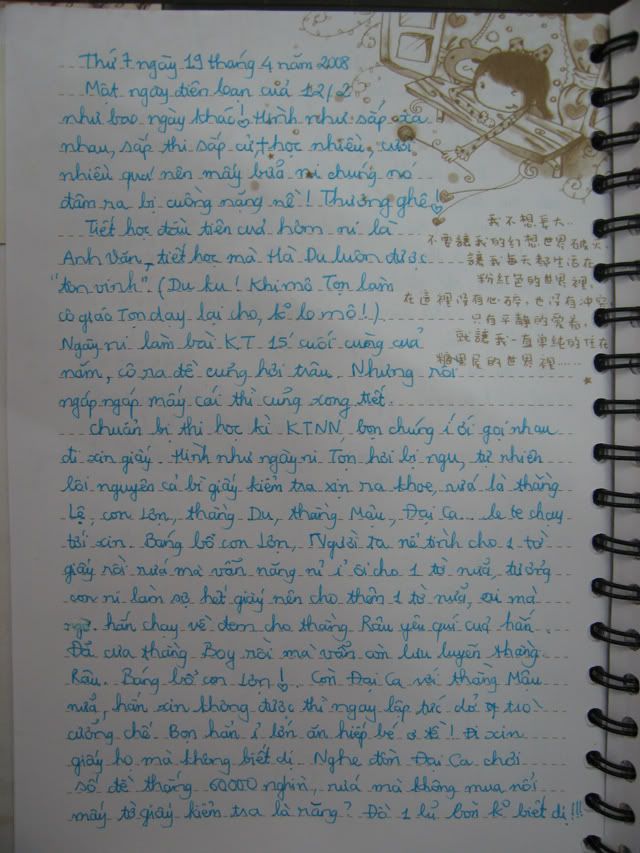 Thứ 7 ngày 19 tháng 4 năm 2008
Một ngày điên loạn của 12/2
như bao ngày khác! Hình như sắp xa
nhau, sắp thi sắp cử, học nhiều, cười
nhiều quá nên mấy bữa ni chúng nó
đâm ra bị cuồng nặng nề! Thương ghê!
Tiết học đầu tiên của hôm ni là
Anh Văn, tiết học mà Hà Du luôn được
"tôn vinh". (Du ku! Khi mô Tọn làm
cô giáo Tọn dạy lại cho, k lo mô!).
Ngày ni làm bài K.T 15' cuối cùng của
năm, cô ra đề cũng hơi trâu. Nhưng rồi
ngáp ngáp mấy cái thì cũng xong tiết.
Chuẩn bị thi học kì KTNN, bọn chúng í ới gọi nhau
đi xin giấy. Hình như ngày ni Tọn hơi bị ngu, tự nhiên
lôi nguyên cả bì giấy kiểm tra xin ra khoe, rứa là thằng
Lệ, con Lớn, thằng Du, thằng Mậu, Đại Ca... le te chạy
tới xin. Bang bổ con Lớn, Người ta nể tình cho 1 tờ
giấy rồi rứa mà vẫn năng nỉ ỉ ôi cho 1 tờ nữa, tưởng
con ni làm sợ hết giấy nên cho thêm 1 tờ nữa, ai mà
ngờ hắn chạy về đem cho thằng Râu yêu quí của hắn.
Đã cưa thằng Boy rồi mà vẫn còn lưu luyến thằng
Râu. Bang bổ con Lớn! Còn Đại Ca với thằng Mậu
nữa, hắn xin không được thì ngay lập tức dở trò
cưỡng chế. Bọn hắn ỉ lớn ăn hiệp bé
Đi xin
giấy họ mà không biết dị. Nghe đồn Đại Ca chơi
số đề thắng 60000 nghìn, rứa mà không mua nổi
mấy tờ giấy kiểm tra là răng? Đồ 1 lũ bọn k biết dị!!!
我不想長大...
不要讓我的幻想世界破火
讓我每天都生活在
粉紅色的世界裡,
在這裡沒有心碎,也沒有沖突
只有平靜的愛着,
就讓我一直單純的住在
糖果屋的世界裡.....